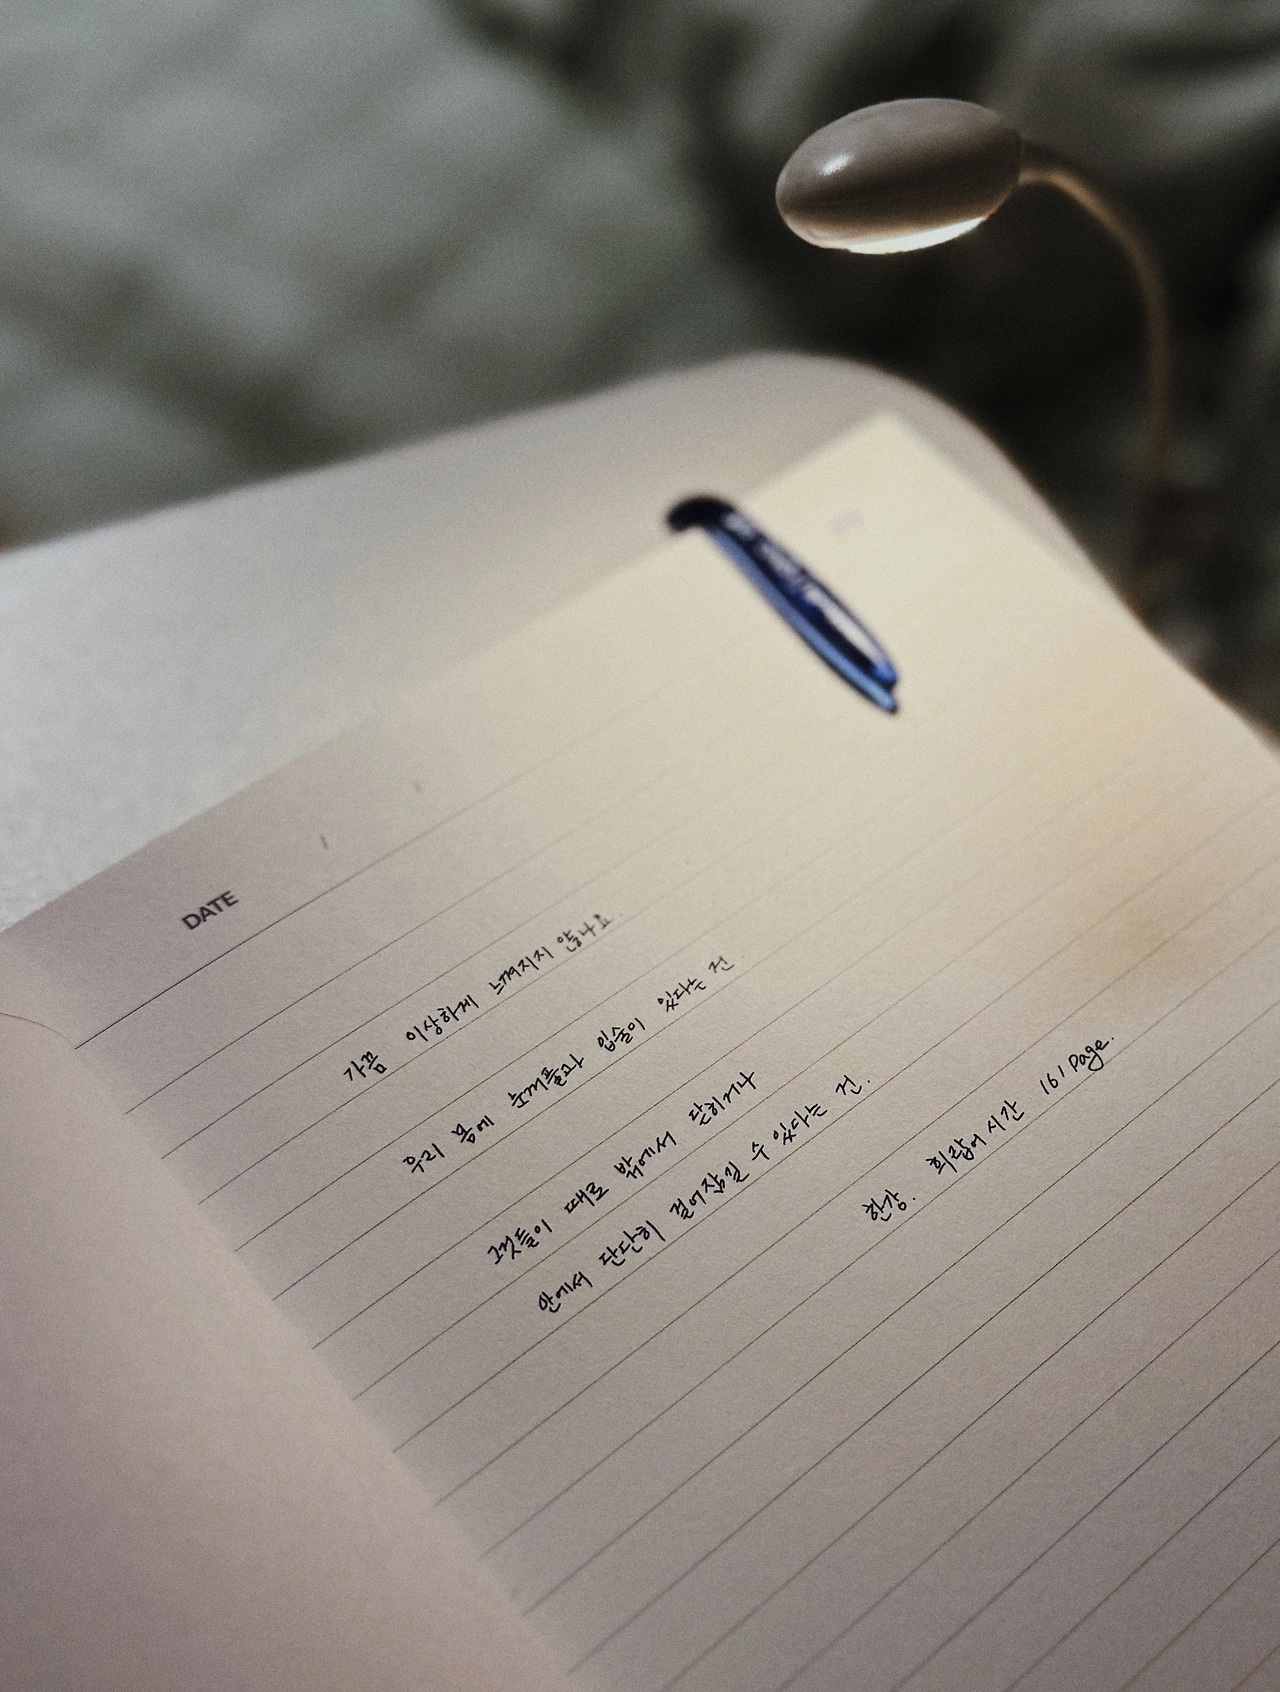 DATE
가끔 이상하게 느껴지지 않나요.
우리 몸에 눈꺼풀과 입술이 있다는 건.
그것들이 때로 밖에서 닫히거나
안에서 단단히 걸어잠길 수 있다는 건.
한강. 희랍어 시간 161 page.